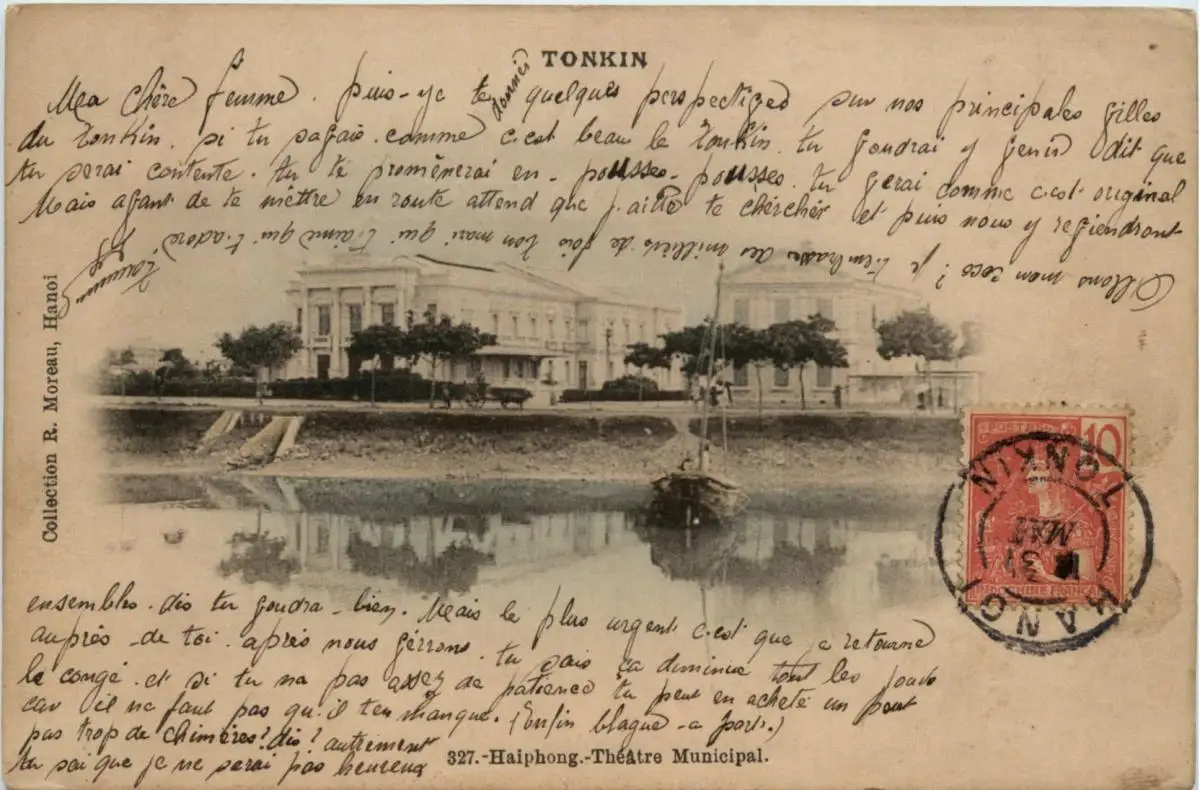 TONKIN
Ma chère femme. puis-ye te donnés quelques perspectives sur nos principales villes
du tonkin. si tu savais comme c'est beau le tonkin. tu voudrai y venir dit que
tu serai contente. tu te promènerai en pousses-pousses. tu verai comme c'est original
Mais avant de te mettre en route attend que j'aille te chercher et puis nous y reviendront
Allons mon coco ; je t'embrasse des milliers de fois ton mari qui t'aime qui t'adore
Collection R. Moreau, Hanoi
10
POSTES
INDOCHINE FRANÇAISE
TONKIN
31
MAI
ensembles. dis tu voudra-bien. Mais le plus urgent c'est que je retourne
auprès de toi. après nous vérrons. tu sais ça diminue tout les jours
le congé. et si tu na pas assez de patience tu peut en acheté un pout
car il ne faut pas qu'il t'en manque. (Enfin blague-a part.)
pas trop de chimères? dis? autrement
tu sai que je ne serai pas heureux
327.-Haiphong.-Théâtre Municipal.